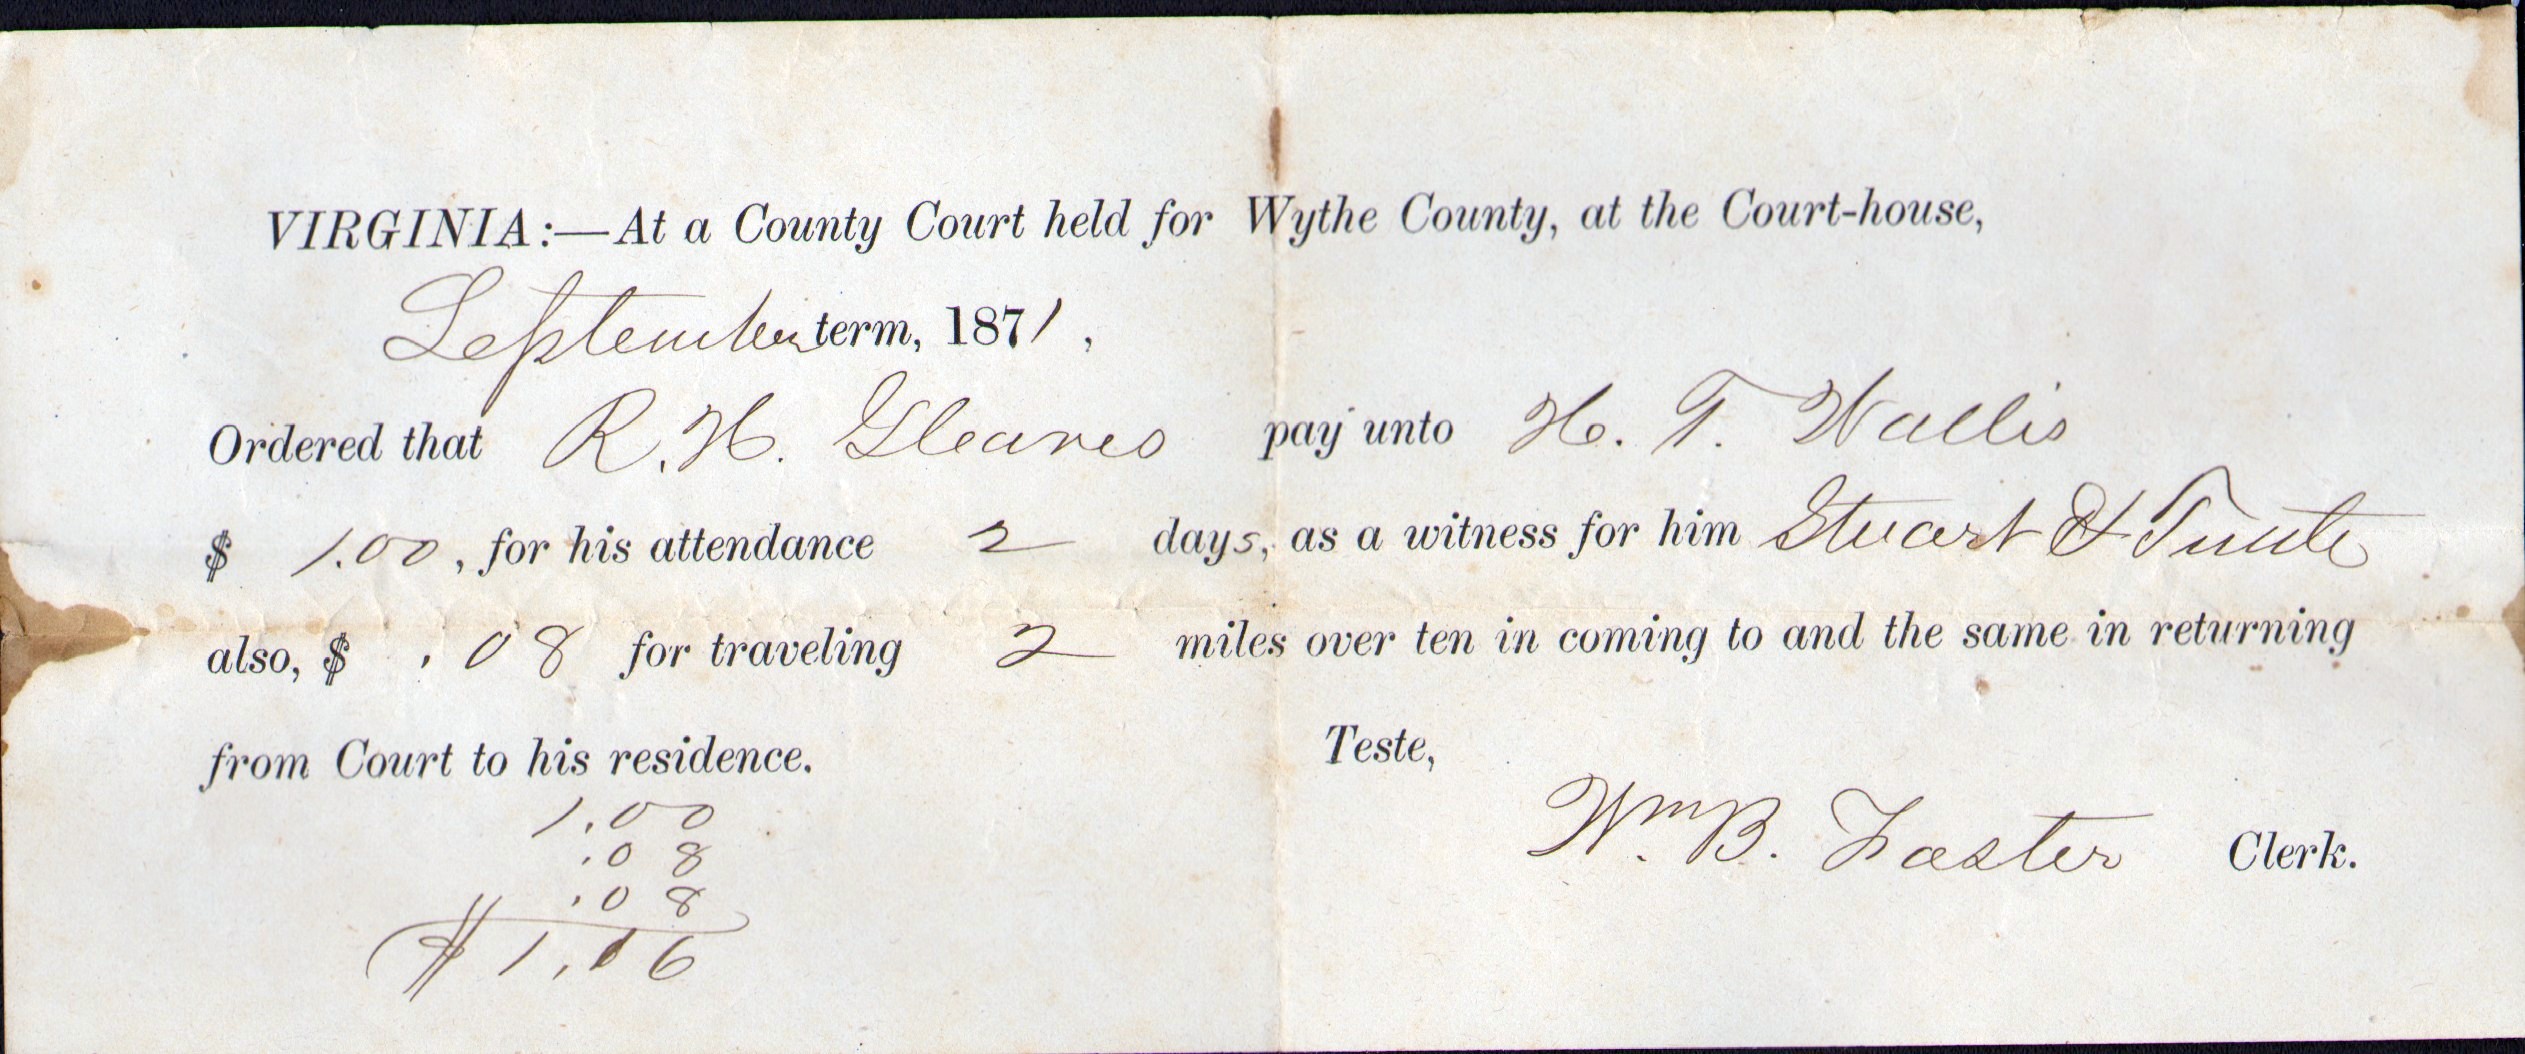 VIRGINIA:—At a County Court held for Wythe County, at the Court-house,
September term, 1871,
Ordered that R. H. Gleaves pay unto H. T. Wallis
$ 1.00, for his attendance 2 days, as a witness for him Stuart &
also, $ .08 for traveling 2 miles over ten in coming to and the same in returning
from Court to his residence. Teste,
Wm. B. Foster Clerk.
1.00
.08
.08
$1.16